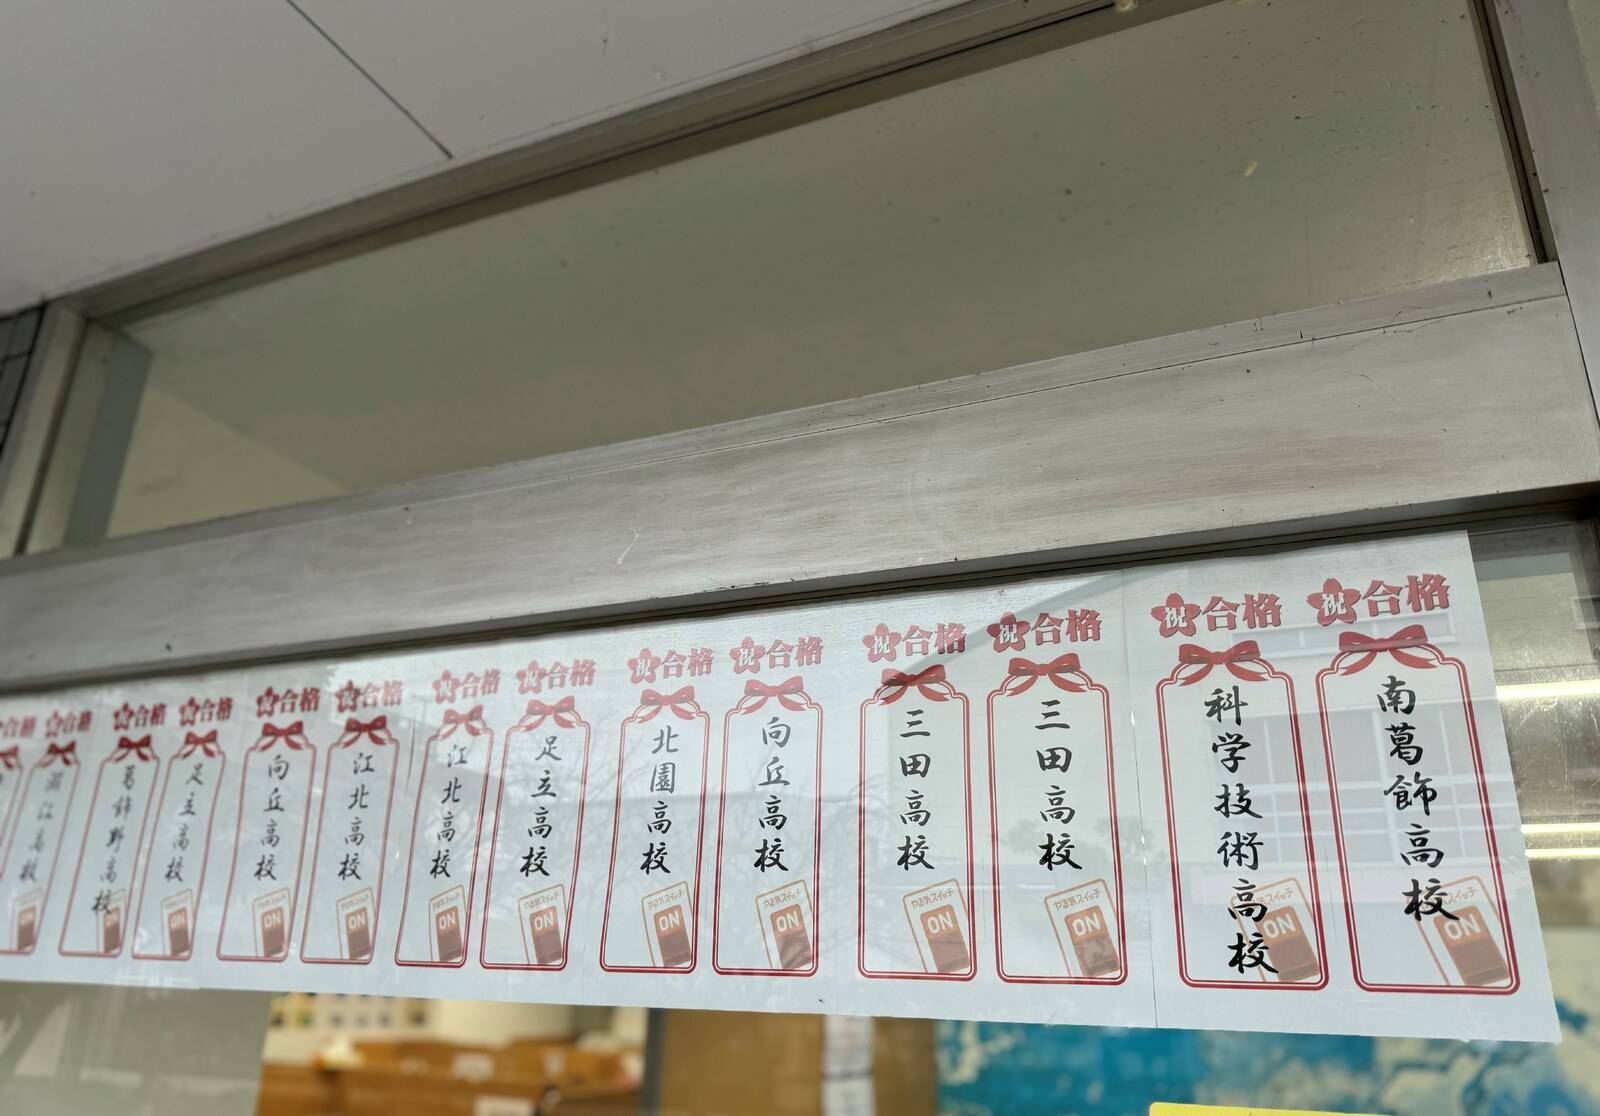 祝合格
南葛飾高校
やる気スイッチ
ON
祝合格
科学技術高校
やる気スイッチ
ON
祝合格
三田高校
やる気スイッチ
ON
祝合格
三田高校
やる気スイッチ
ON
祝合格
向丘高校
やる気スイッチ
ON
祝合格
北園高校
やる気スイッチ
ON
祝合格
足立高校
やる気スイッチ
ON
祝合格
江北高校
やる気スイッチ
ON
祝合格
江北高校
ON
祝合格
向丘高校
ON
祝合格
足立高校
ON
祝合格
葛飾野高校
ON
祝合格
淵江高校
ON
合格